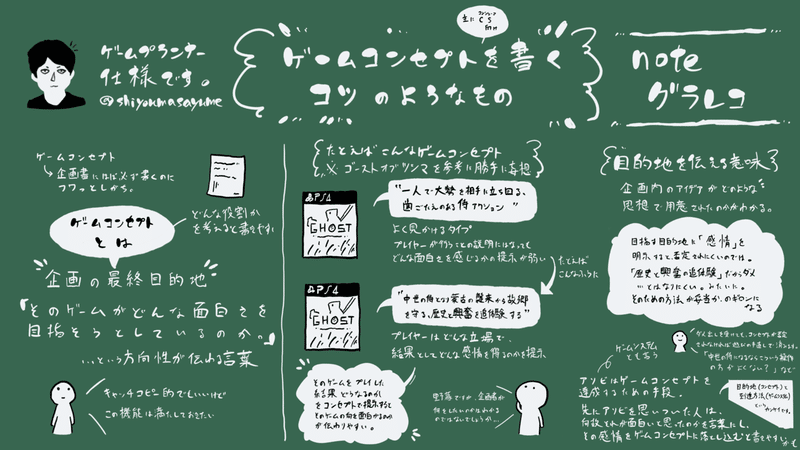 ゲームプランナー
仕様です。
@shiyoumasayume
主に
CS
向け
ゲームコンセプトを書く
コツ のようなもの
note
グラレコ
ゲームコンセプト
企画書には必ず書くのに
フワッとしがち。
どんな役割か
を考えると書きやすい
ゲームコンセプト
とは
企画の最終目的地
"そのゲームがどんな面白さを
目指そうとしているのか。"
...という方向性が伝わる言葉
キャッチコピー的でもいいけど
この機能は満たしておきたい
たとえばこんなゲームコンセプト
※ ゴーストオブツシマを参考に勝手に妄想
PS4
GHOST
"一人で大勢を相手に立ち回る、
歯ごたえのある侍アクション"
よく見かけるタイプ
プレイヤーが行うことの説明にはなっても
どんな面白さを感じるかの提示が弱い
たとえば
こんなふうに
PS4
GHOST
"中世の侍となり蒙古の襲来から故郷
を守る、歴史と興奮を追体験する"
プレイヤーはどんな立場で、
結果としてどんな感情を得るのかを提示
そのゲームをプレイした
結果どうなるのか
をコンセプトで提示すると
そのゲームの何を面白がるのか
が伝わりやすい。
企画書が
何をしたいのかはわかる
のではないでしょうか...
目的地を伝える意味
企画内のアイデアがどのような
思想で用意されたのかがわかる。
目指す目的地に「感情」を
明示すると否定されにくいのでは。
「歴史と興奮の追体験」だからダメ
...とはなりにくい。みたいに。
そのための方法が妥当か、のギロンに
なる
「中世の侍になるならこういう操作
の方がよくない?」など
ゲームシステム
とも言う
アソビはゲームコンセプトを
達成するための手段。
目的地(コンセプト)と
到達方法(ゲームシステム)
という
カンケイです。
先にアソビを思いついた人は、
何故それが面白いと思ったのかを言葉にし、
その感情をゲームコンセプトに落とし込むと書きやすいかも